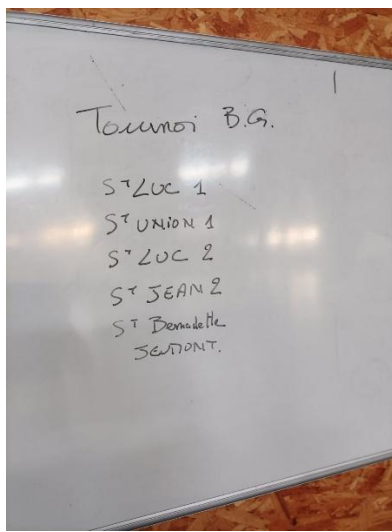 Tournoi B.G.
ST LUC 1
ST UNION 1
ST LUC 2
ST JEAN 2
ST Bernadette
JEUMONT.